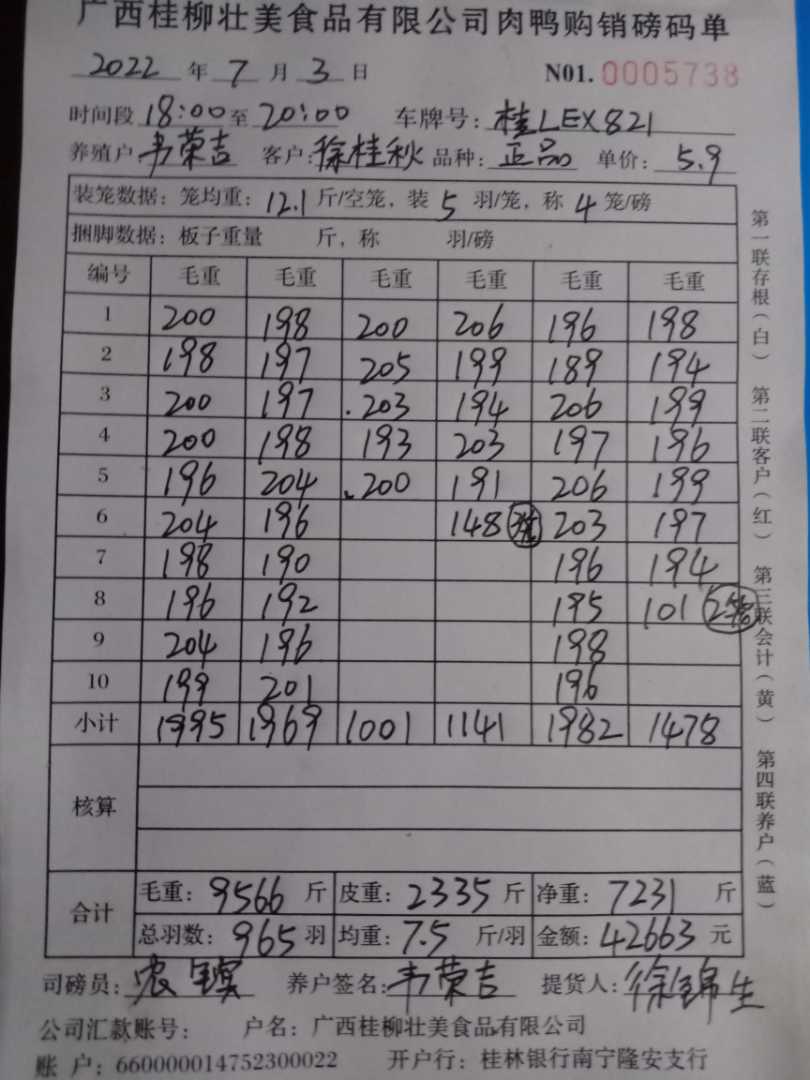 广西桂柳壮美食品有限公司肉鸭购销磅码单
2022 年 7 月 3 日 N01. 0005738
时间段 18:00 至 20:00 车牌号: 桂LEX821
养殖户 韦荣吉 客户: 徐桂秋 品种: 正品 单价: 5.9
装笼数据: 笼均重: 12.1 斤/空笼, 装 5 羽/笼, 称 4 笼/磅
捆脚数据: 板子重量 斤, 称 羽/磅
编号 毛重 毛重 毛重 毛重 毛重 毛重
1 200 198 200 206 196 198
2 198 197 205 199 189 194
3 200 197 203 194 206 199
4 200 198 193 203 197 196
5 196 204 200 191 206 199
6 204 196 148 203 197
7 198 190 196 194
8 196 192 195 101
9 204 196 198
10 199 201 196
小计 1995 1969 1001 1141 1982 1478
核算
合计 毛重: 9566 斤 皮重: 2335 斤 净重: 7231 斤
总羽数: 965 羽 均重: 7.5 斤/羽 金额: 42663 元
司磅员: 农 养户签名: 韦荣吉 提货人: 徐锦生
公司汇款账号: 户名: 广西桂柳壮美食品有限公司
账 户: 660000014752300022 开户行: 桂林银行南宁隆安支行
第一联存根(白) 第二联客户(红) 第三联会计(黄) 第四联养户(蓝)